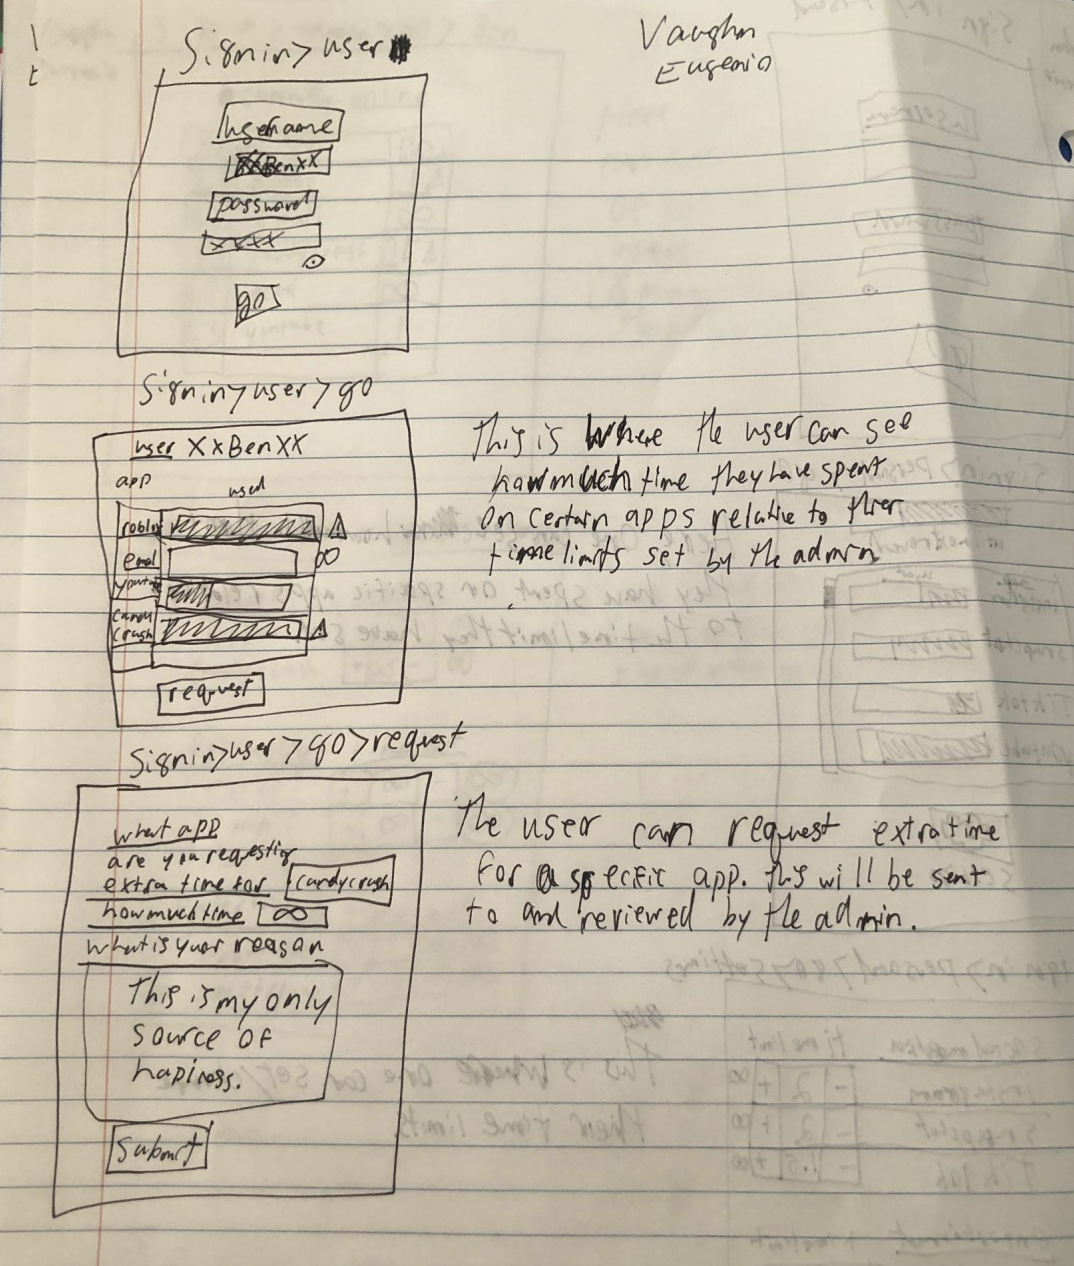 Vaughn
Eugenio
Signin>user
username
XxBenXX
password
xxxx
go
Signin>user>go
user XxBenXX
app
used
roblox
email
∞
candy
crush
request
This is where the user can see
how much time they have spent
on certain apps relative to thier
time limits set by the admin
Signin>user>go>request
what app
are you requesting
extra time for candycrush
how much time ∞
what is your reason
This is my only
source of
hapiness.
submit
The user can request extra time
for a specific app. this will be sent
to and reviewed by the admin.